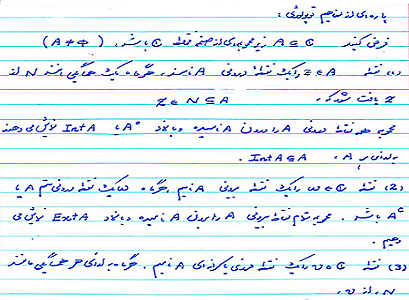 پاره‌ای از مفاهیم توپولوژی :
فرض کنید A ⊆ ℂ زیر مجموعه‌ای از صفحه مختلط ℂ باشد. (A ≠ ∅)
(1) نقطه z ∈ A را یک نقطه درونی A نامند، هرگاه یک همسایگی مانند N از
z یافت شود که z ∈ N ⊆ A
مجموعه همه نقاط درونی A را درون A نامیده و با نماد A° یا Int A نمایش می دهند
Int A ⊆ A .
(2) نقطه ℂ را یک نقطه بیرونی A نامیم ، هرگاه یک نقطه درونی متمم A یا
Aᶜ باشد . مجموعه تمام نقاط بیرونی A را بیرون A نامیده و با نماد Ext A نمایش می
دهیم .
(3) نقطه v ∈ ℂ را یک نقطه مرزی یا کرانه‌ای A نامیم . هرگاه به ازای هر همسایگی مانند
N از v ،